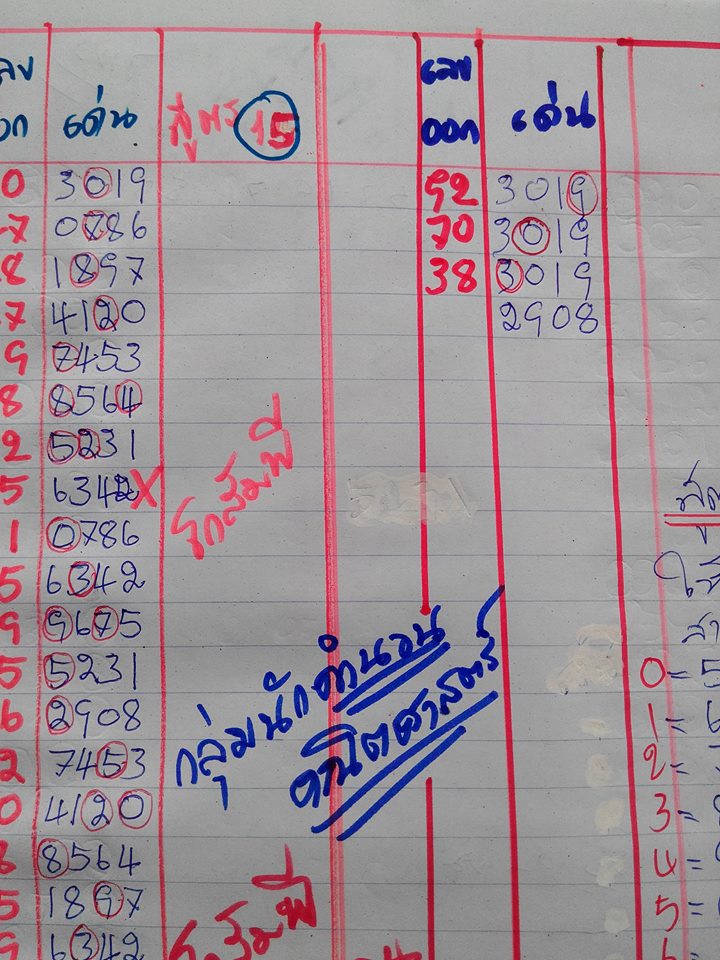 เลข
ออก เด่น สูตร 15 ออก เด่น
0 3019 92 3019
7 0786 70 3019
8 1897 38 3019
7 4120 2908
9 7453
8 8564
2 5231
5 6342 X
1 0786
5 6342
9 9675
5 5231
6 2908
2 7453
0 4120
8 8564
5 1897
9 6342
โกสัมพี
กลุ่มนักคำนวน
คณิตศาสตร์
0 = 5
1 = 6
2 =
3 = 8
4 = 9
5 =
6 =